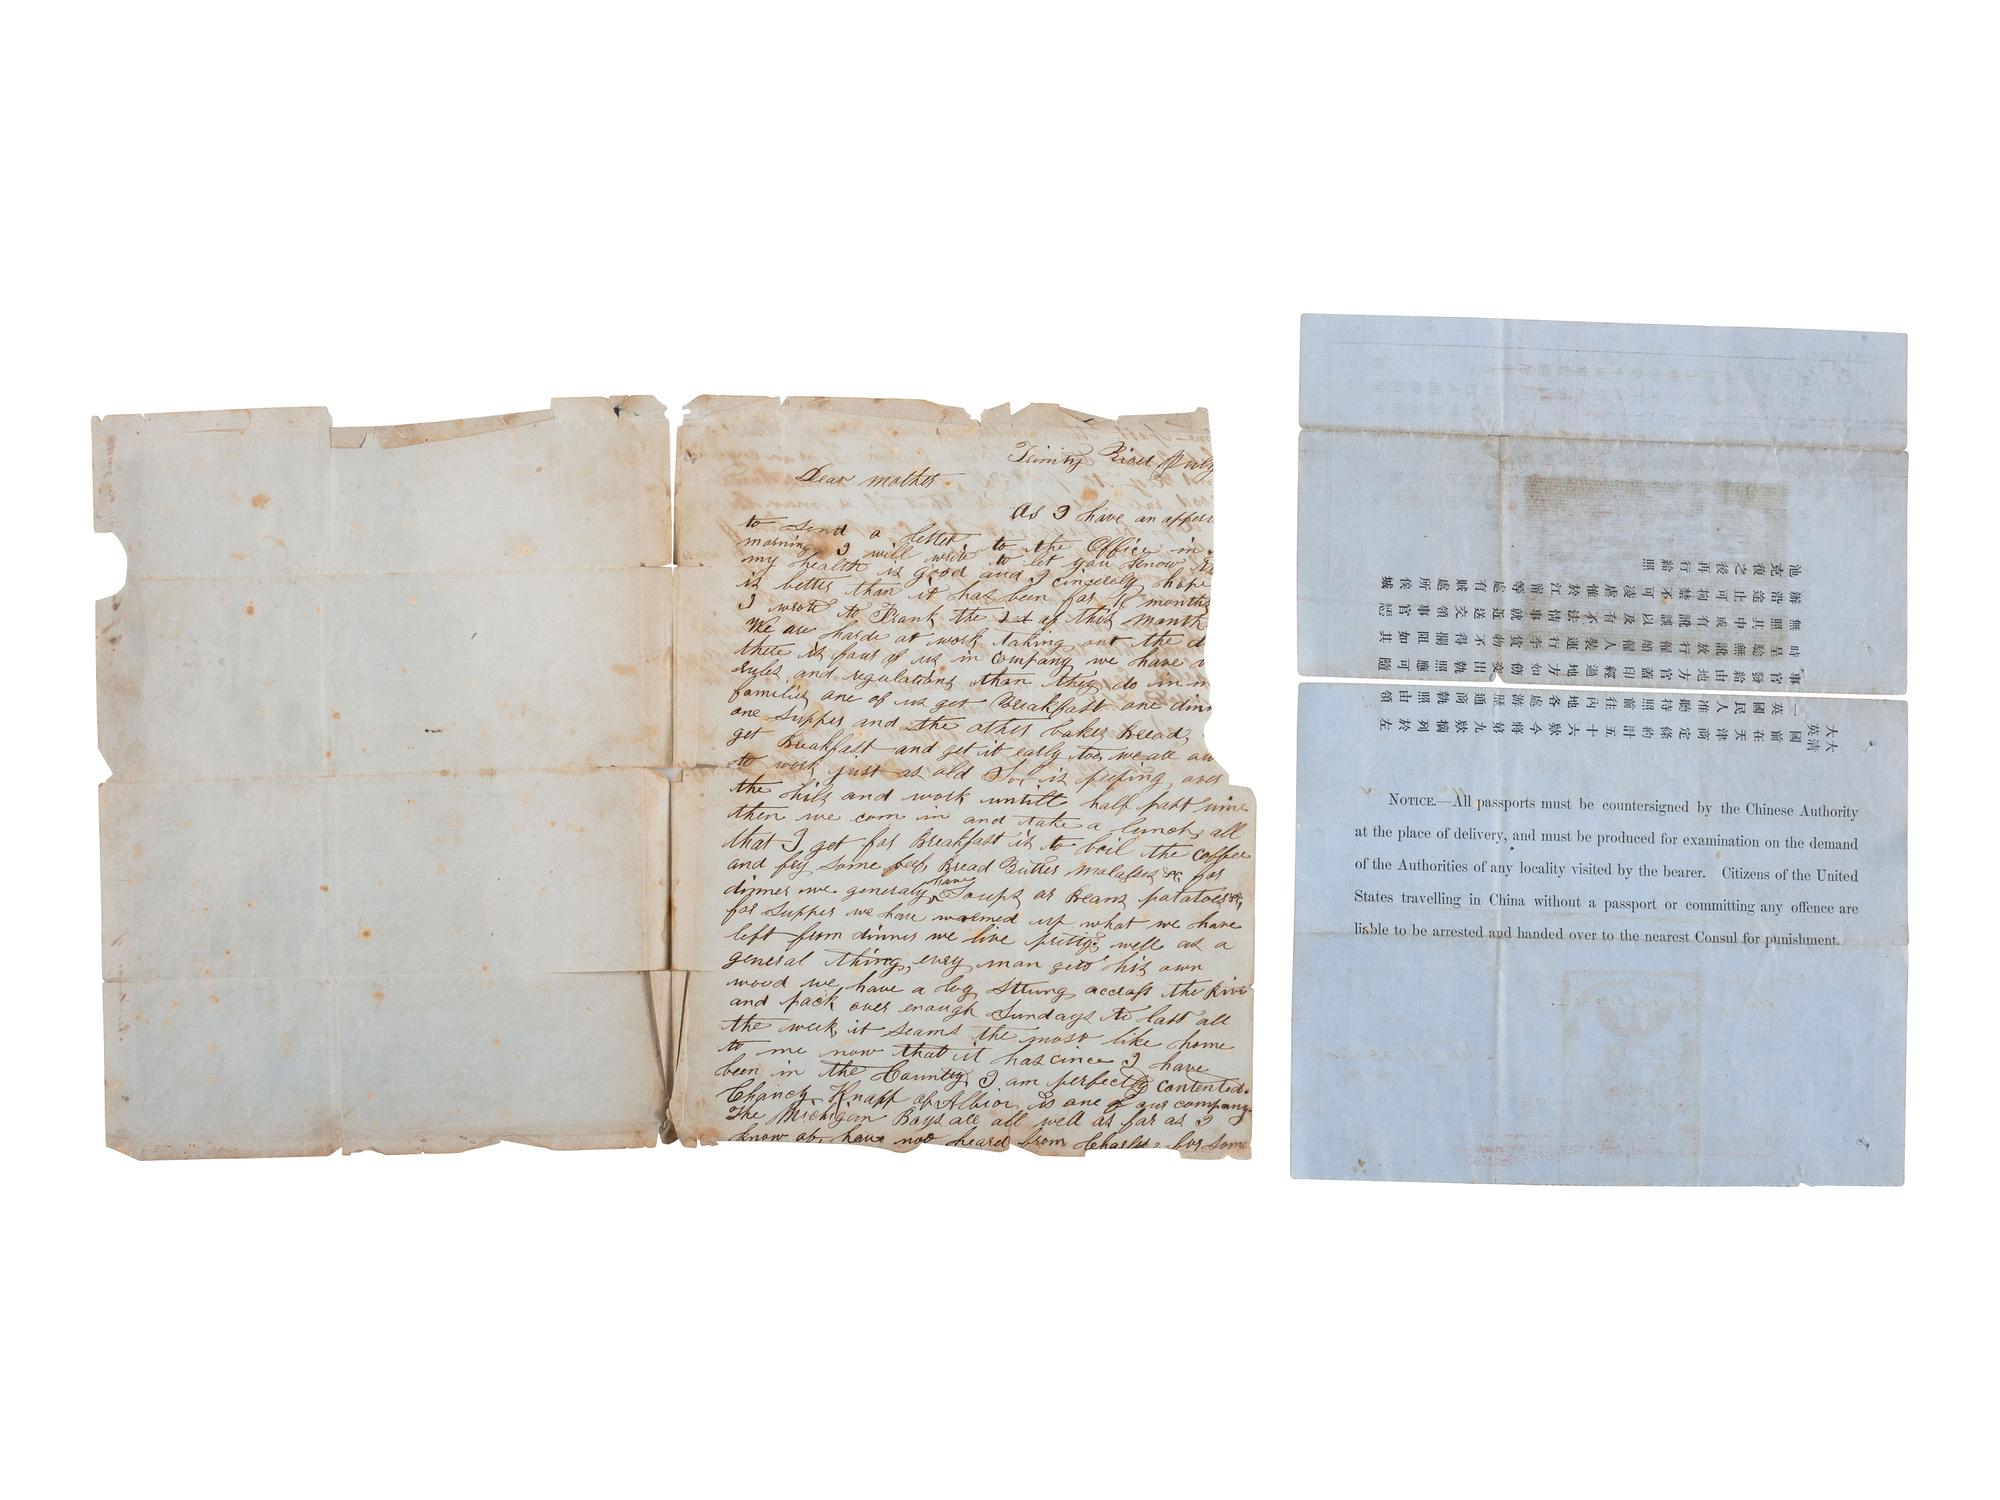 Trinity River July
Dear mother
As I have an appor
to send a letter to the Office in
morning I will write to let you know
my health is good and I cincerely hope
is better than it has been for 18 months
I wrote to Frank the 1st of this month
We are harde at work taking out the d
there is four of us in company we have
rules and regulations than they do in m
families one of us get Breakfast one dinn
one Supper and the other bakes Bread,
get Breakfast and get it early too, we are
to work just as old Sol is peeping over
the hils and work untill half past nine
then we com in and take a lunch, all
that I get for Breakfast is to boil the coffee
and fry some beef, Bread Butter malasses &c for
dinner we generaly have Soups or Beans potatoes &c,
for Supper we have warmed up what we have
left from dinner we live pritty well as a
general thing, evry man gets his own
wood we have a log strung accross the River
and pack over enough Sundays to last all
the week, it seams the most like home
to me now that it has cince I have
been in the Country, I am perfectly contented.
Chancy Knapp of Albion is one of our company.
The Michigan Boys are all well as far as I
know of, have not heard from Charles for some
大清大英國前在天津商定條約計五十六欵今將第九欵摘列於左
一英國民人准聽持照前往內地各處游歷通商執照由領
事官發給由地方官蓋印經過地方如飭交出執照應可隨
時呈驗無訛放行雇船雇人裝運行李貨物不得攔阻如其
無照其中或有訛誤以及有不法情事就近送交領事官懲
辦沿途止可拘禁不可凌虐惟於江甯等處有賊處所俟城
池克復之後再行給照
NOTICE.—All passports must be countersigned by the Chinese Authority
at the place of delivery, and must be produced for examination on the demand
of the Authorities of any locality visited by the bearer. Citizens of the United
States travelling in China without a passport or committing any offence are
liable to be arrested and handed over to the nearest Consul for punishment.